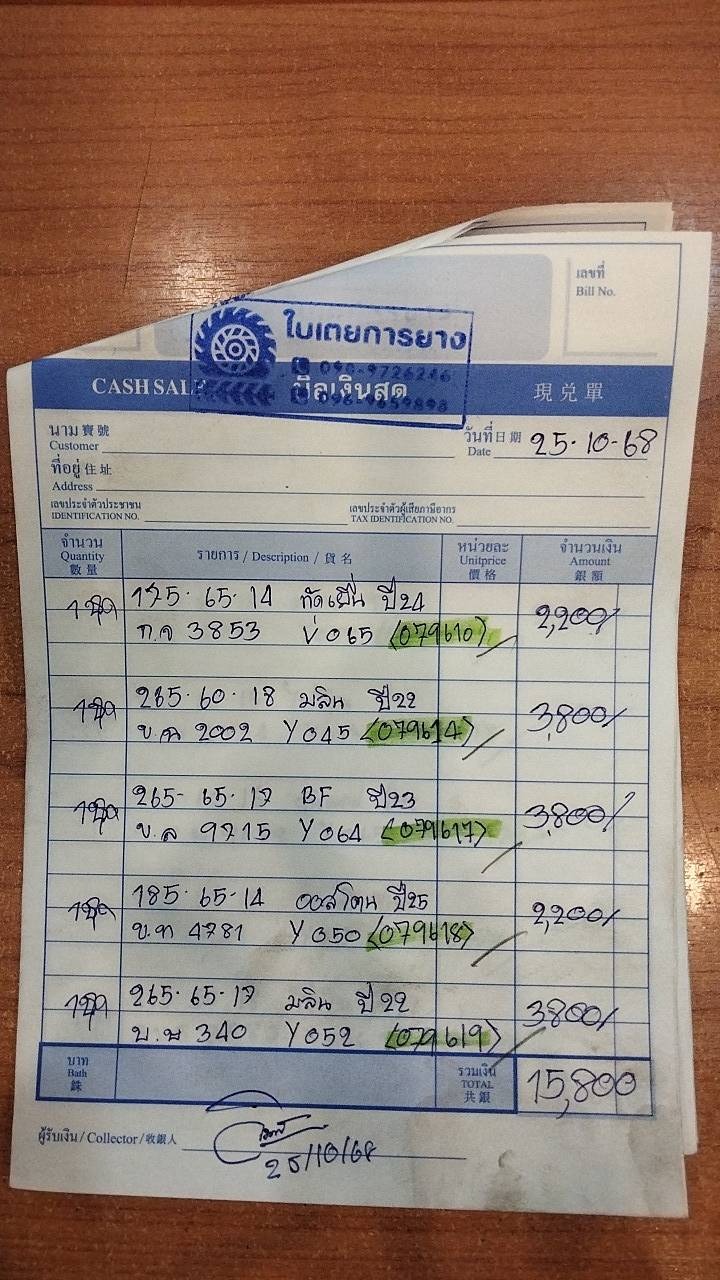 เลขที่
Bill No.
ใบเตยการยาง
090-9726246
CASH SALE บิลเงินสด 現兑單
นาม 寶號
Customer
วันที่ 日期 25-10-68
Date
ที่อยู่ 住址
Address
เลขประจำตัวประชาชน เลขประจำตัวผู้เสียภาษีอากร
IDENTIFICATION NO. TAX IDENTIFICATION NO.
จำนวน รายการ / Description / 貨名 หน่วยละ จำนวนเงิน
Quantity Unitprice Amount
數量 價格 銀額
1ชุด 175-65-14 ปี24 2,200/
ก.จ 3853 Y065 (079610)
1ชุด 265-60-18 มลิน ปี22 3,800/
2002 Y045 (079614)
1ชุด 265-65-17 BF ปี23 3,800/
ข.ล 9715 Y064 (079617)
1ชุด 185-65-14 ออสโตน ปี25 2,200/
ข.ท 4781 Y050 (079618)
1ชุด 265-65-17 มลิน ปี22 3800/
บ.ษ 340 Y052 (079619)
บาท รวมเงิน 15,800
Bath TOTAL
銖 共銀
ผู้รับเงิน / Collector / 收銀人
25/10/68